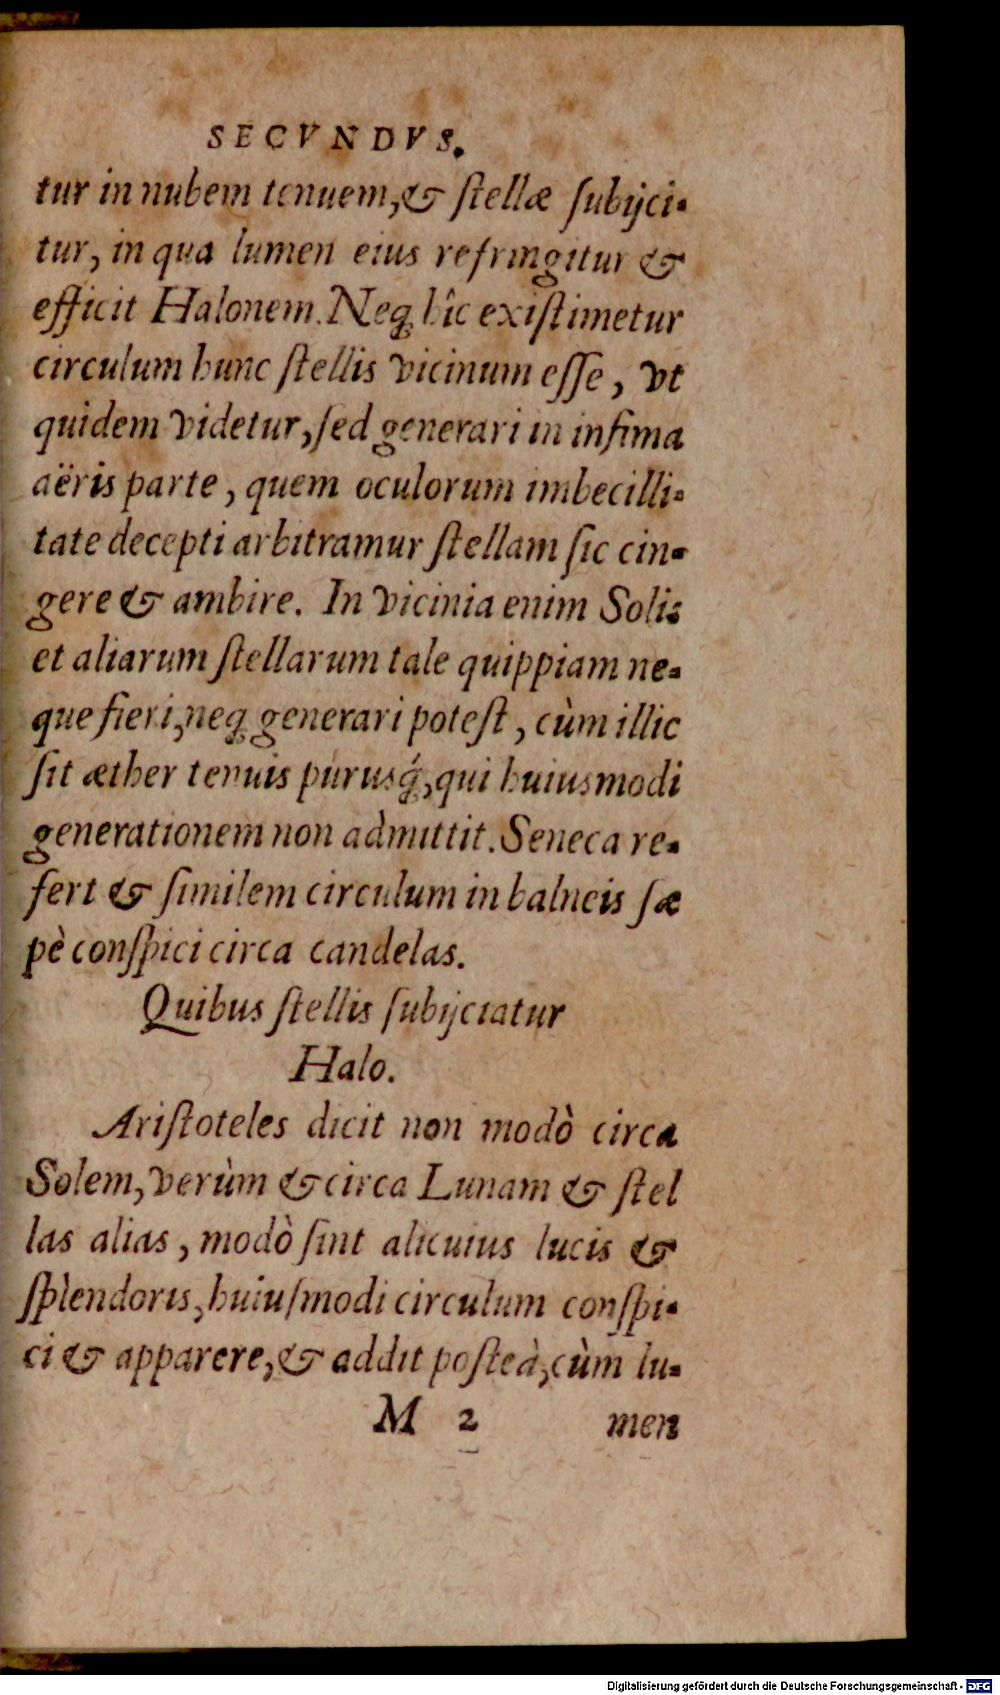 SECVNDVS.
tur in nubem tenuem, & ſtellæ ſubijci-
tur, in qua lumen eius refringitur &
efficit Halonem. Neqꝫ hîc exiſtimetur
circulum hunc ſtellis vicinum eſſe, vt
quidem videtur, ſed generari in infima
aëris parte, quem oculorum imbecilli-
tate decepti arbitramur ſtellam ſic cin-
gere & ambire. In vicinia enim Solis
et aliarum ſtellarum tale quippiam ne-
que fieri, neqꝫ generari poteſt, cùm illic
ſit æther tenuis purusq́ꝫ, qui huiusmodi
generationem non admittit. Seneca re-
fert & ſimilem circulum in balneis ſæ
pè conſpici circa candelas.
Quibus ſtellis ſubijciatur
Halo.
Ariſtoteles dicit non modò circa
Solem, verùm & circa Lunam & ſtel
las alias, modò ſint alicuius lucis &
ſplendoris, huiuſmodi circulum conſpi-
ci & apparere, & addit poſteà, cùm lu-
M 2 men
Digitalisierung gefördert durch die Deutsche Forschungsgemeinschaft - DFG